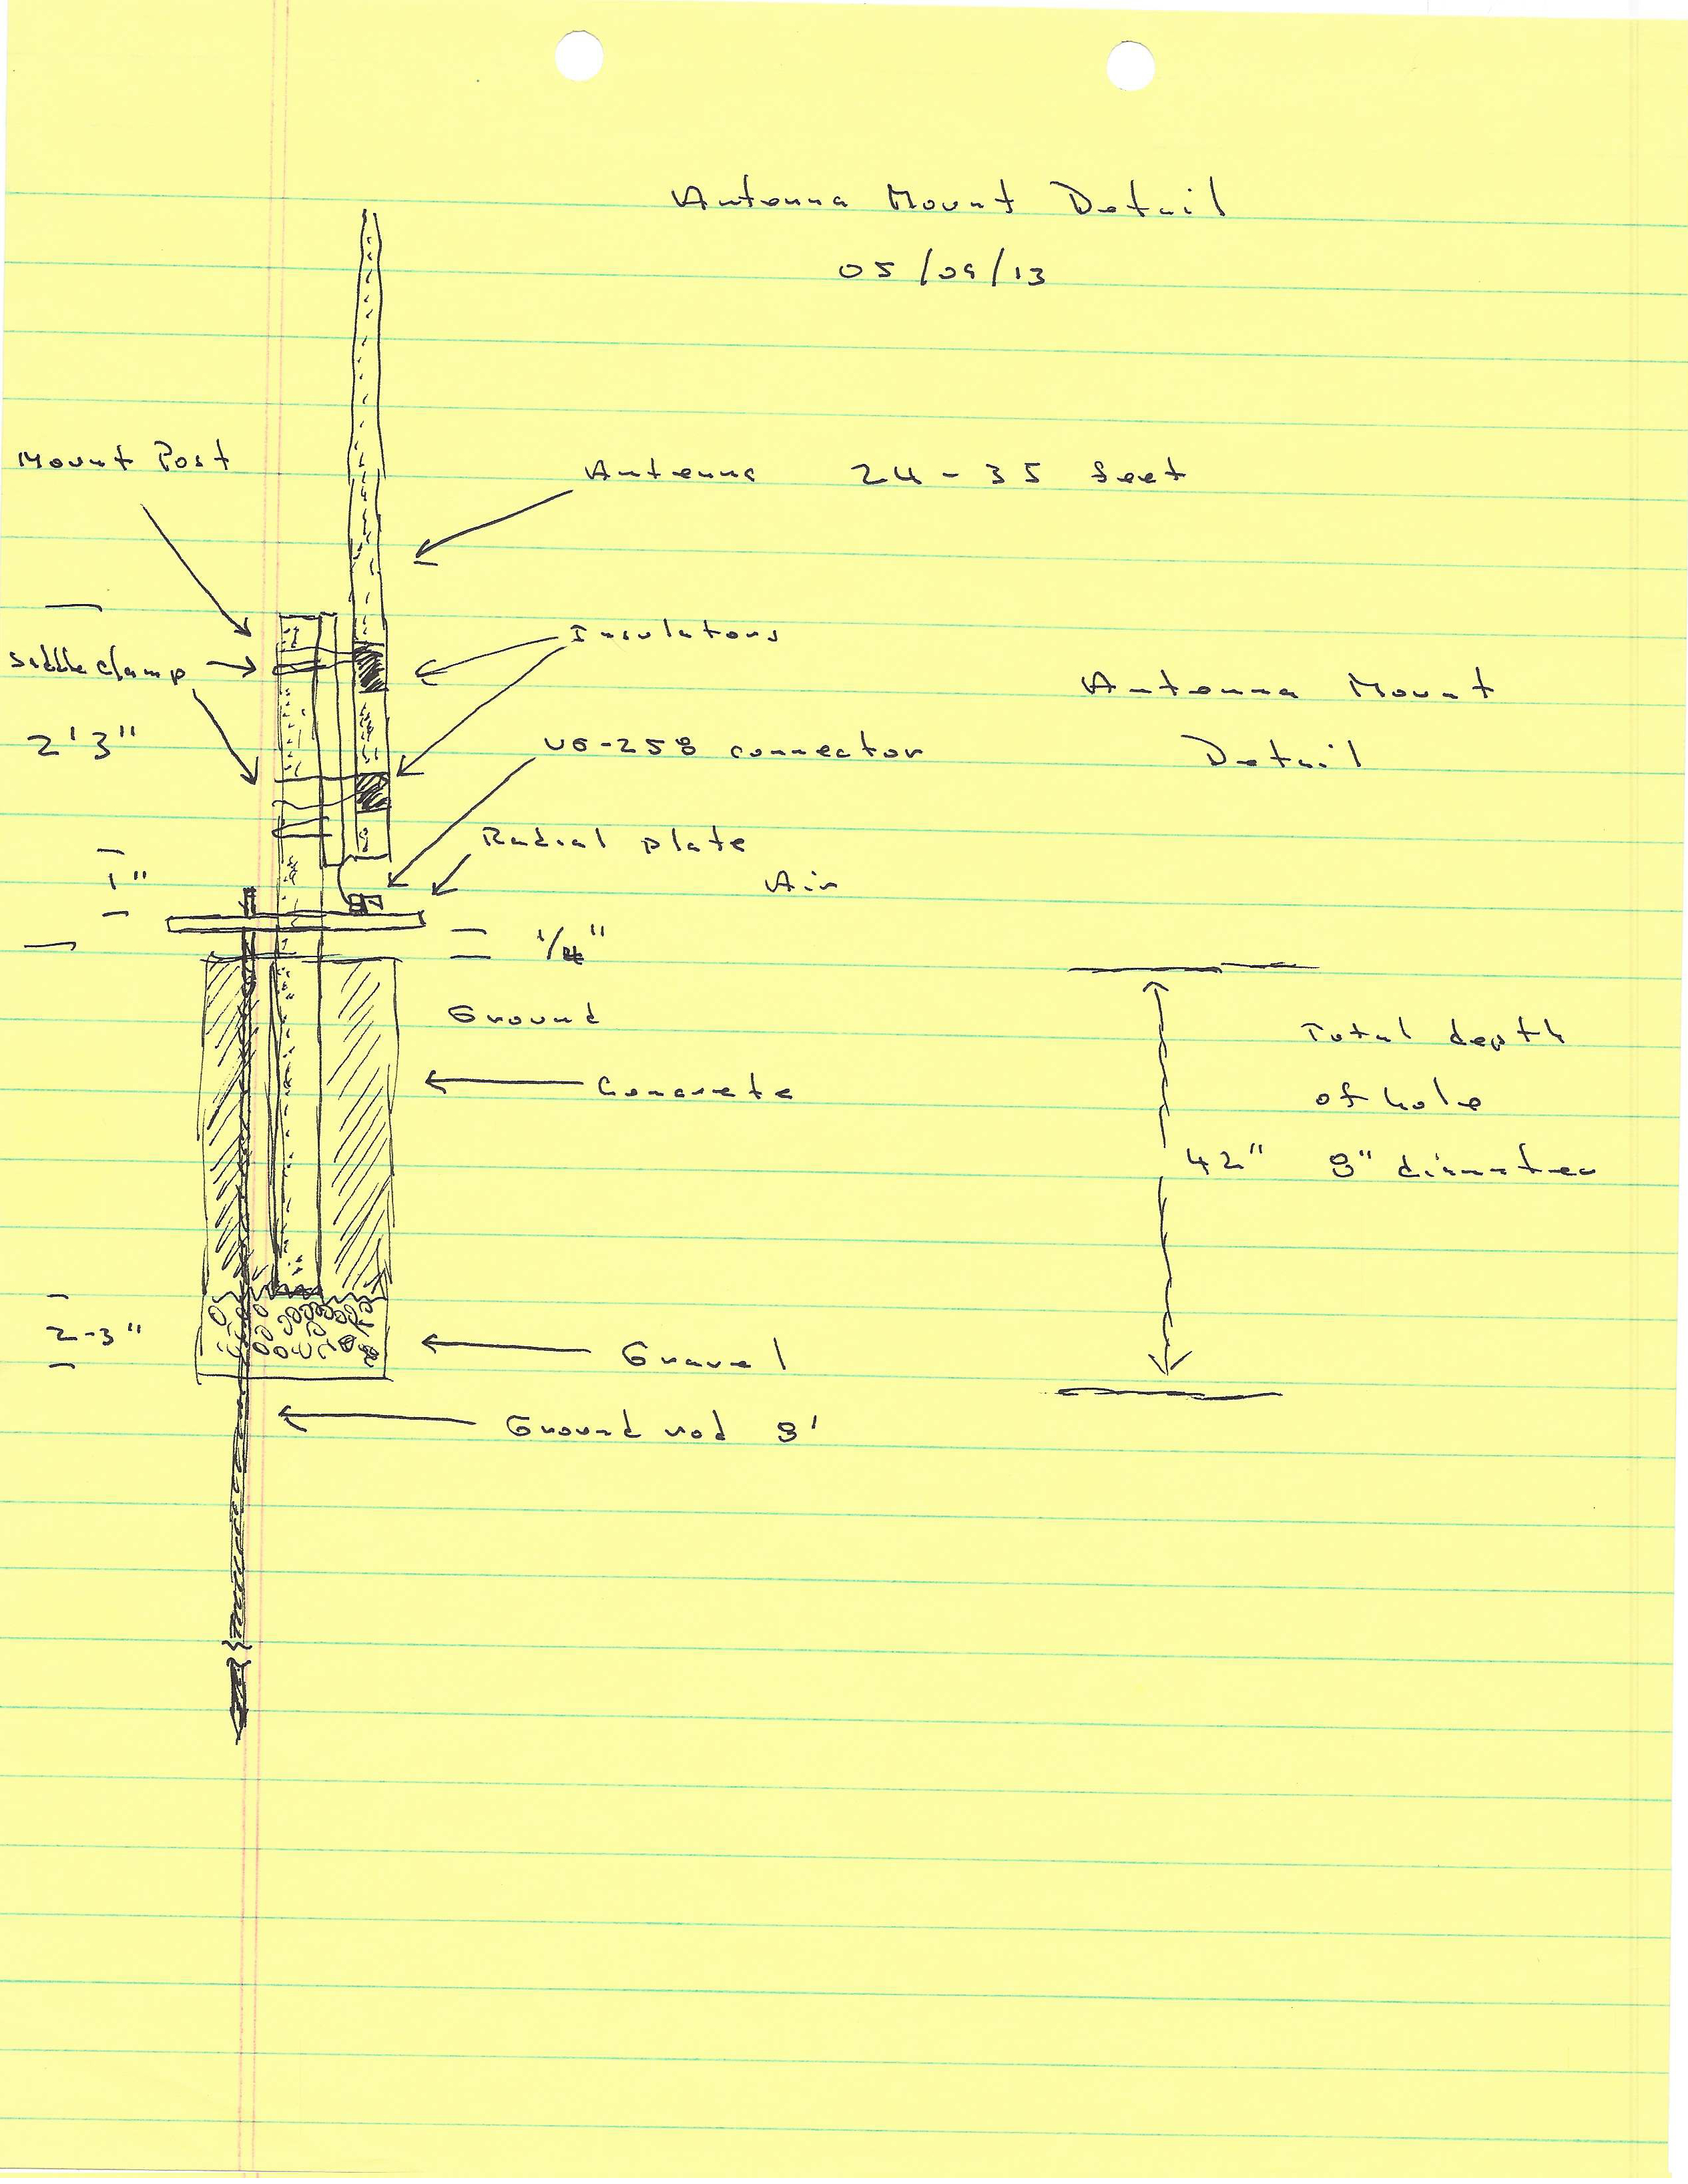 Antenna Mount Detail
05/09/13
Mount Post
Antenna 24-35 feet
Insulators
Siddle clamp
Antenna Mount
Detail
2'3"
UG-258 connector
Radial plate
1"
Air
1/4"
Ground
Total depth
of hole
Concrete
42" 8" diameter
2-3"
Gravel
Ground rod 8'